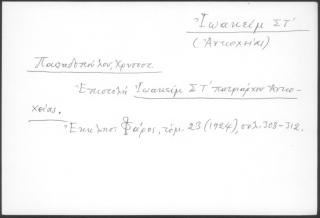 Ἰωακεὶμ ΣΤ΄
(Ἀντιοχείας)
Παπαδοπούλου, Χρυσοστ.
Ἐπιστολὴ Ἰωακεὶμ ΣΤ΄ πατριάρχου Ἀντιο-
χείας.
Ἐκκλησ. Φάρος, τόμ. 23 (1924), σελ. 308-312.